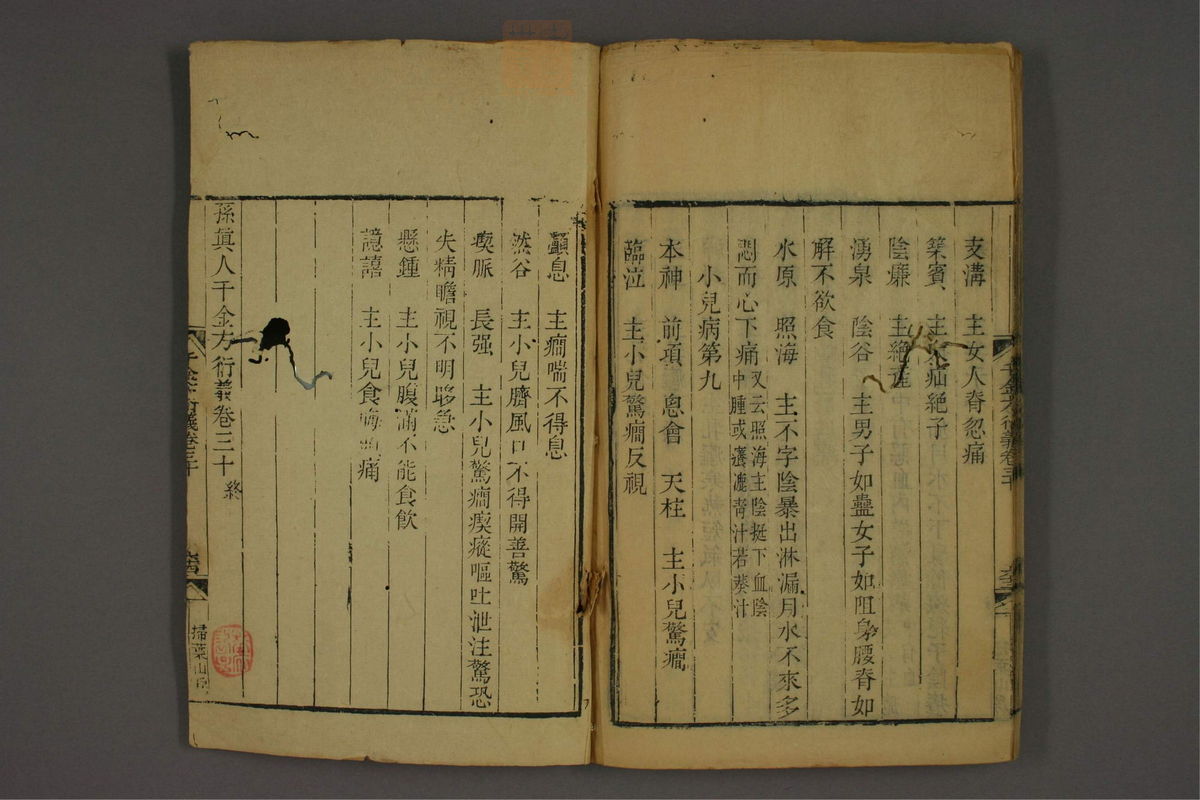 支溝　主女人脊忽痛
築賓　主大疝絶子
陰廉　主絶產
湧泉　陰谷　主男子如蠱女子如阻身腰脊如
解不欲食
水原　照海　主不字陰暴出淋漏月水不來多
悶而心下痛又云照海主陰挺下血陰中腫或癢漉青汁若葵汁
小兒病第九
本神　前項　囟會　天柱　主小兒驚癎
臨泣　主小兒驚癎反視
顱息　主癎喘不得息
然谷　主小兒臍風口不得開善驚
瘈脈　長强　主小兒驚癎瘈瘲嘔吐泄注驚恐
失精瞻視不明眵
懸鍾　主小兒腹滿不能食飲
譩譆　主小兒食晦頭痛
孫眞人千金方衍義卷三十　終
掃葉山